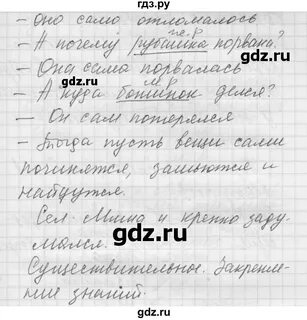 gdz.ru
- Оно само отломалось
- А почему рубашка порвана?
- Она сама порвалась
- А куда ботинок делся?
- Он сам потерялся
- Тогда пусть вещи сами
починятся, зашьются и
найдутся.
Сел Миша и крепко заду
мался.
Существительные. Закрепле-
ние знаний.
gdz.ru